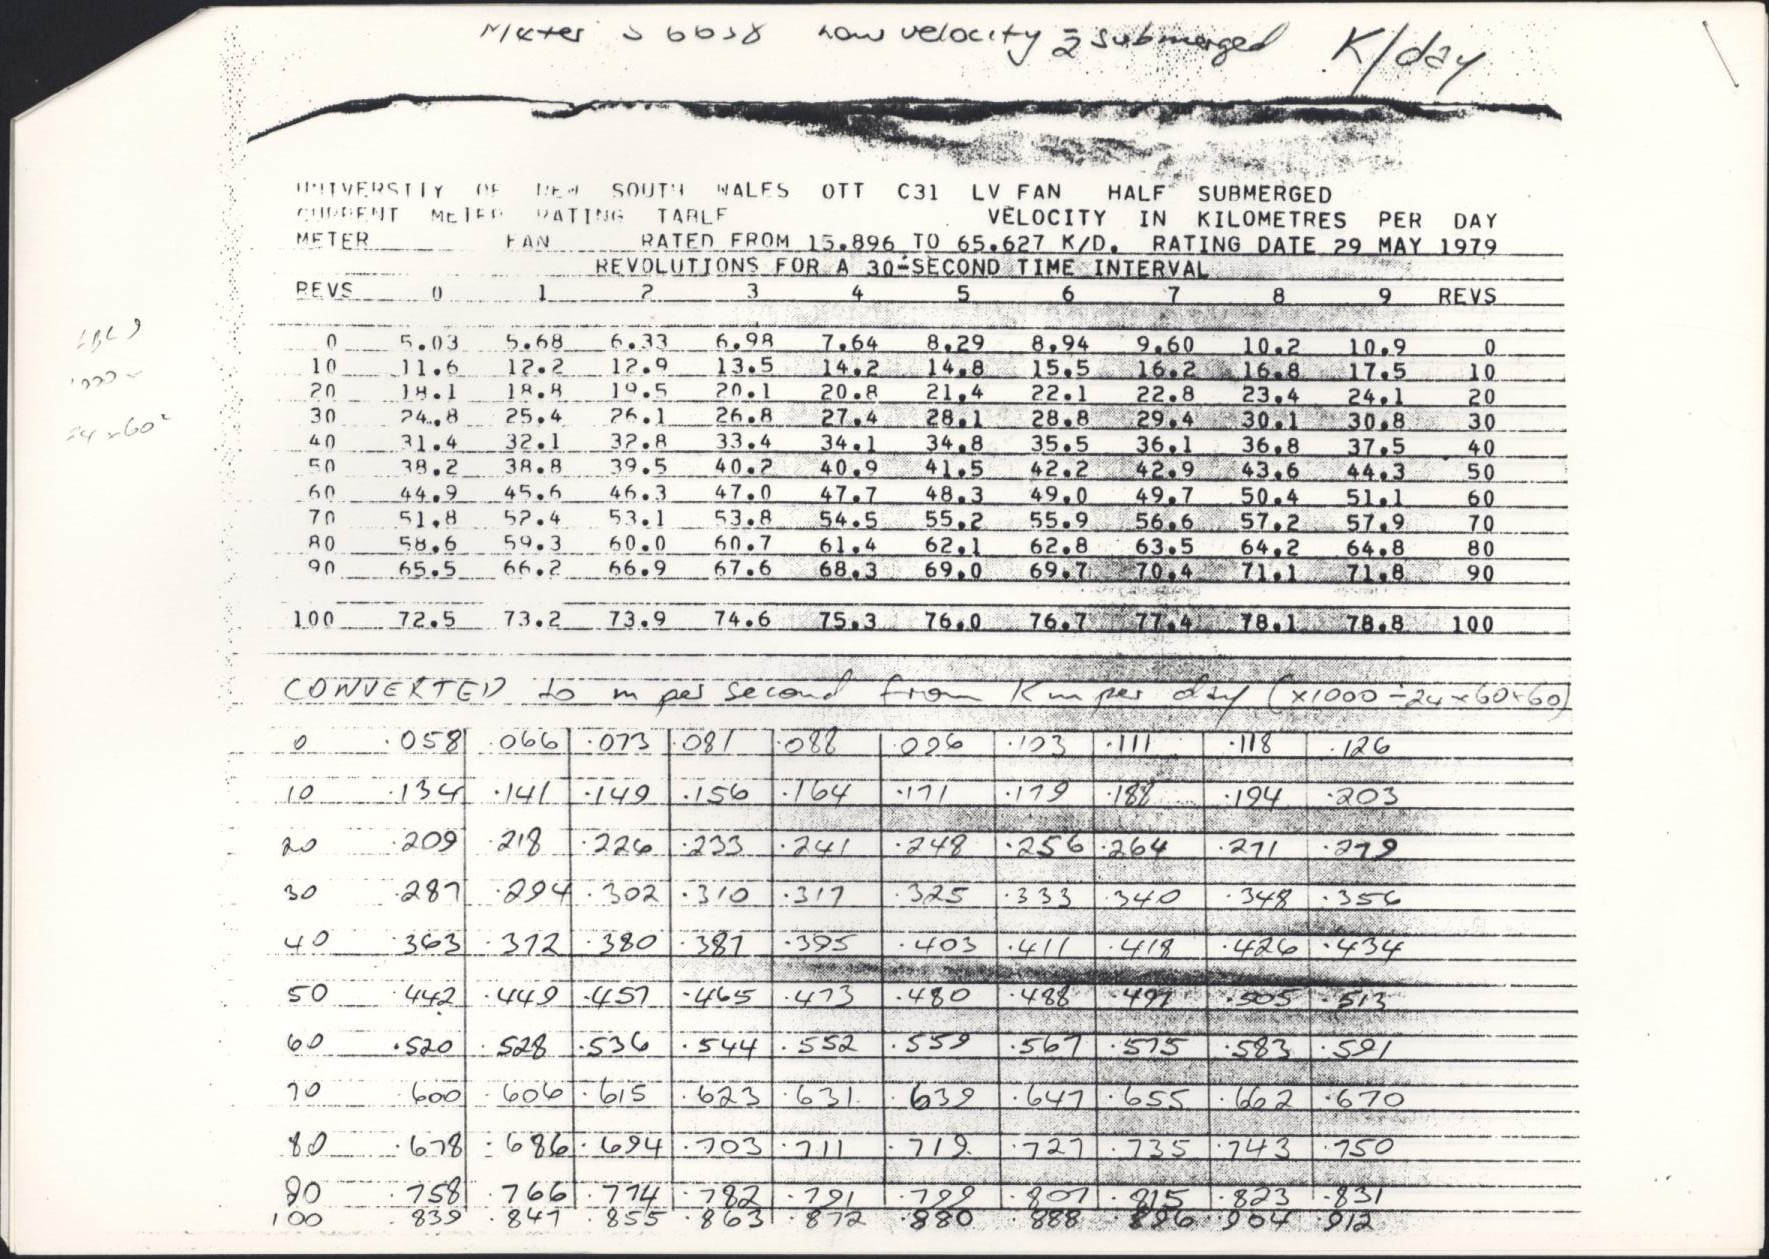 Meter 56038 Low velocity ½ submerged K/day
UNIVERSITY OF NEW SOUTH WALES OTT C31 LV FAN HALF SUBMERGED
CURRENT METER RATING TABLE VELOCITY IN KILOMETRES PER DAY
METER FAN RATED FROM 15.896 TO 65.627 K/D. RATING DATE 29 MAY 1979
REVOLUTIONS FOR A 30-SECOND TIME INTERVAL
REVS 0 1 2 3 4 5 6 7 8 9 REVS
0 5.03 5.68 6.33 6.98 7.64 8.29 8.94 9.60 10.2 10.9 0
10 11.6 12.2 12.9 13.5 14.2 14.8 15.5 16.2 16.8 17.5 10
20 18.1 18.8 19.5 20.1 20.8 21.4 22.1 22.8 23.4 24.1 20
30 24.8 25.4 26.1 26.8 27.4 28.1 28.8 29.4 30.1 30.8 30
40 31.4 32.1 32.8 33.4 34.1 34.8 35.5 36.1 36.8 37.5 40
50 38.2 38.8 39.5 40.2 40.9 41.5 42.2 42.9 43.6 44.3 50
60 44.9 45.6 46.3 47.0 47.7 48.3 49.0 49.7 50.4 51.1 60
70 51.8 52.4 53.1 53.8 54.5 55.2 55.9 56.6 57.2 57.9 70
80 58.6 59.3 60.0 60.7 61.4 62.1 62.8 63.5 64.2 64.8 80
90 65.5 66.2 66.9 67.6 68.3 69.0 69.7 70.4 71.1 71.8 90
100 72.5 73.2 73.9 74.6 75.3 76.0 76.7 77.4 78.1 78.8 100
1000
24×60²
CONVERTED to m per second from Km per day (×1000 ÷24×60×60)
0 .058 .066 .073 .081 .088 .096 .103 .111 .118 .126
10 .134 .141 .149 .156 .164 .171 .179 .188 .194 .203
20 .209 .218 .226 .233 .241 .248 .256 .264 .271 .279
30 .287 .294 .302 .310 .317 .325 .333 .340 .348 .356
40 .363 .372 .380 .387 .395 .403 .411 .418 .426 .434
50 .442 .449 .457 .465 .473 .480 .488 .497 .505 .513
60 .520 .528 .536 .544 .552 .559 .567 .575 .583 .591
70 .600 .606 .615 .623 .631 .639 .647 .655 .662 .670
80 .678 .686 .694 .703 .711 .719 .727 .735 .743 .750
90 .758 .766 .774 .782 .791 .799 .807 .815 .823 .831
100 .839 .847 .855 .863 .872 .880 .888 .896 .904 .912